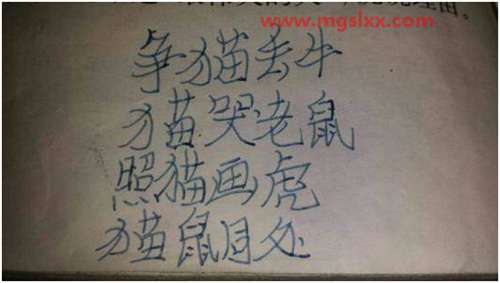 理由。
www.mgslxx.com
争猫丢牛
猫哭老鼠
照猫画虎
猫鼠目处